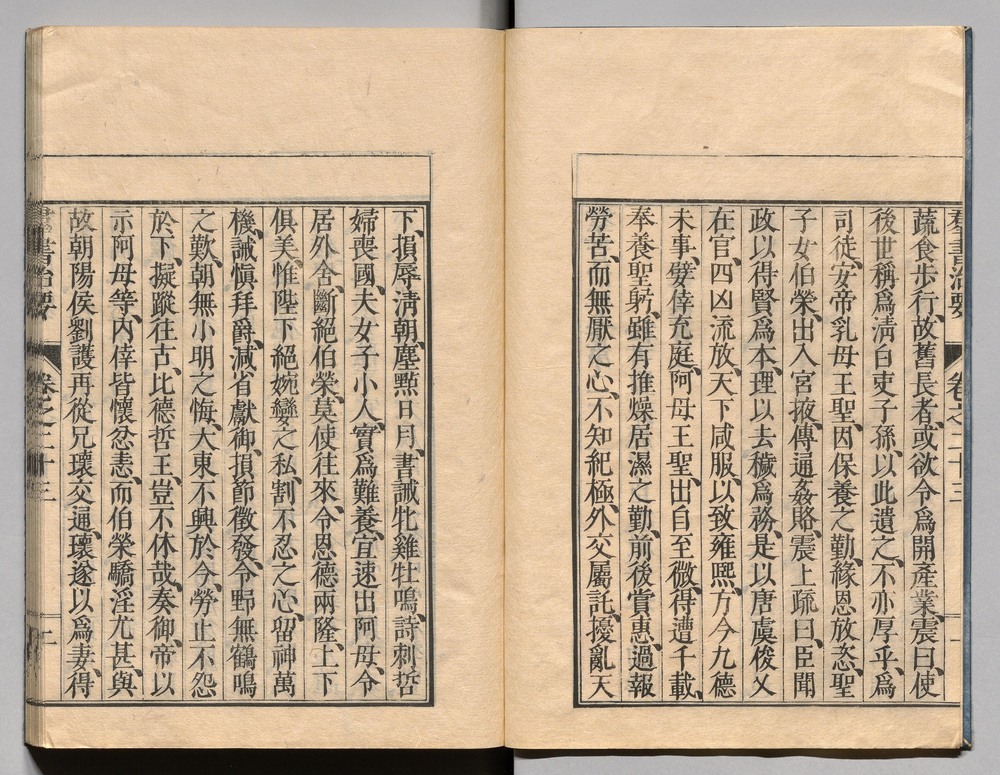 羣書治要 卷之二十三 一
蔬食步行、故舊長者、或欲令爲開產業、震曰、使
後世稱爲淸白吏子孫、以此遺之、不亦厚乎、爲
司徒、安帝乳母王聖、因保養之勤、緣恩放恣、聖
子女伯榮、出入宮掖、傳通姦賂、震上疏曰、臣聞
政以得賢爲本、理以去穢爲務、是以唐虞俊乂
在官、四凶流放、天下咸服、以致雍熙、方今九德
未事、嬖倖充庭、阿母王聖、出自至微、得遭千載、
奉養聖躬、雖有推燥居濕之勤、前後賞惠、過報
勞苦、而無厭之心、不知紀極、外交屬託、擾亂天
下、損辱淸朝、塵點日月、書誡牝雞牡鳴、詩刺哲
婦喪國、夫女子小人、實爲難養、宜速出阿母、令
居外舍、斷絕伯榮、莫使往來、令恩德兩隆、上下
俱美、惟陛下絕婉孌之私、割不忍之心、留神萬
機、誡愼拜爵、減省獻御、損節徵發、令野無鶴鳴
之歎、朝無小明之悔、大東不興於今、勞止不怨
於下、擬蹤往古、比德哲王、豈不休哉、奏御、帝以
示阿母等、內倖皆懷忿恚、而伯榮驕淫尤甚、與
故朝陽侯劉護再從兄瓌交通、瓌遂以爲妻、得
書治要 卷之二十三